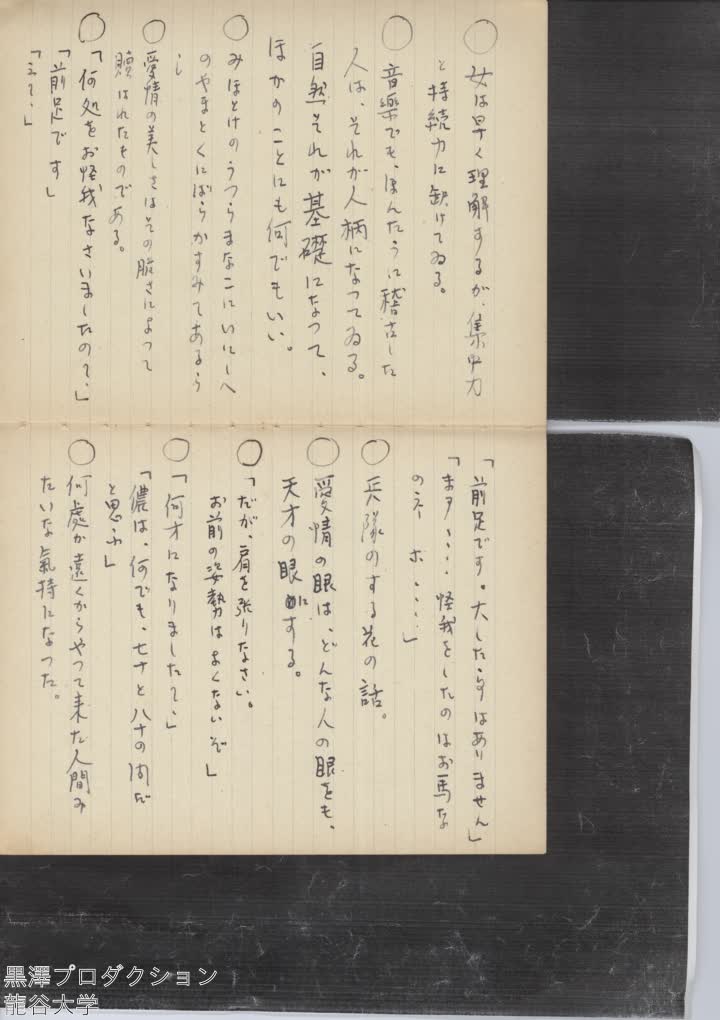 ○ 女は早く理解するが、集中力
と持続力に缺けてゐる。
○ 音楽でも、ほんたうに稽古した
人は、それが人柄になつてゐる。
自然それが基礎になつて、
ほかのことにも何でもいい。
○ みほとけのうつらまなこにいにしへ
のやまとくにばらかすみてあるら
し
○ 愛情の美しさはその脆さによつて
贖はれたものである。
○ 「何処をお怪我なさいましたの?」
「前足です」
「えっ?」
「前足です。大した ではありません」
「まア、、、、怪我をしたのはお馬な
のネ ホ、、、、」
○ 兵隊のする花の話。
○ 愛情の眼は、どんな人の眼をも、
天才の眼にする。
○ 「だが、肩を張りなさい。
お前の姿勢はよくないぞ」
○ 「何才になりました?」
「儂は、何でも、七十と八十の間だ
と思ふ」
○ 何處か遠くからやつて来た人間み
たいな氣持になつた。
黒澤プロダクション
龍谷大学